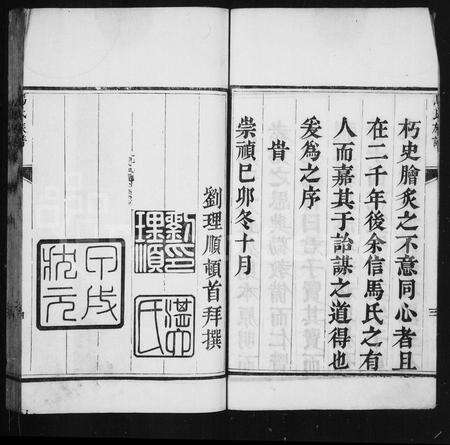 朽史膾炙之不意同心者且
在二千年後余信馬氏之有
人而嘉其于詒謀之道得也
爰為之序
旹
崇禎己卯冬十月
劉理順頓首拜撰
劉理順印
湛六氏
甲戌狀元
三